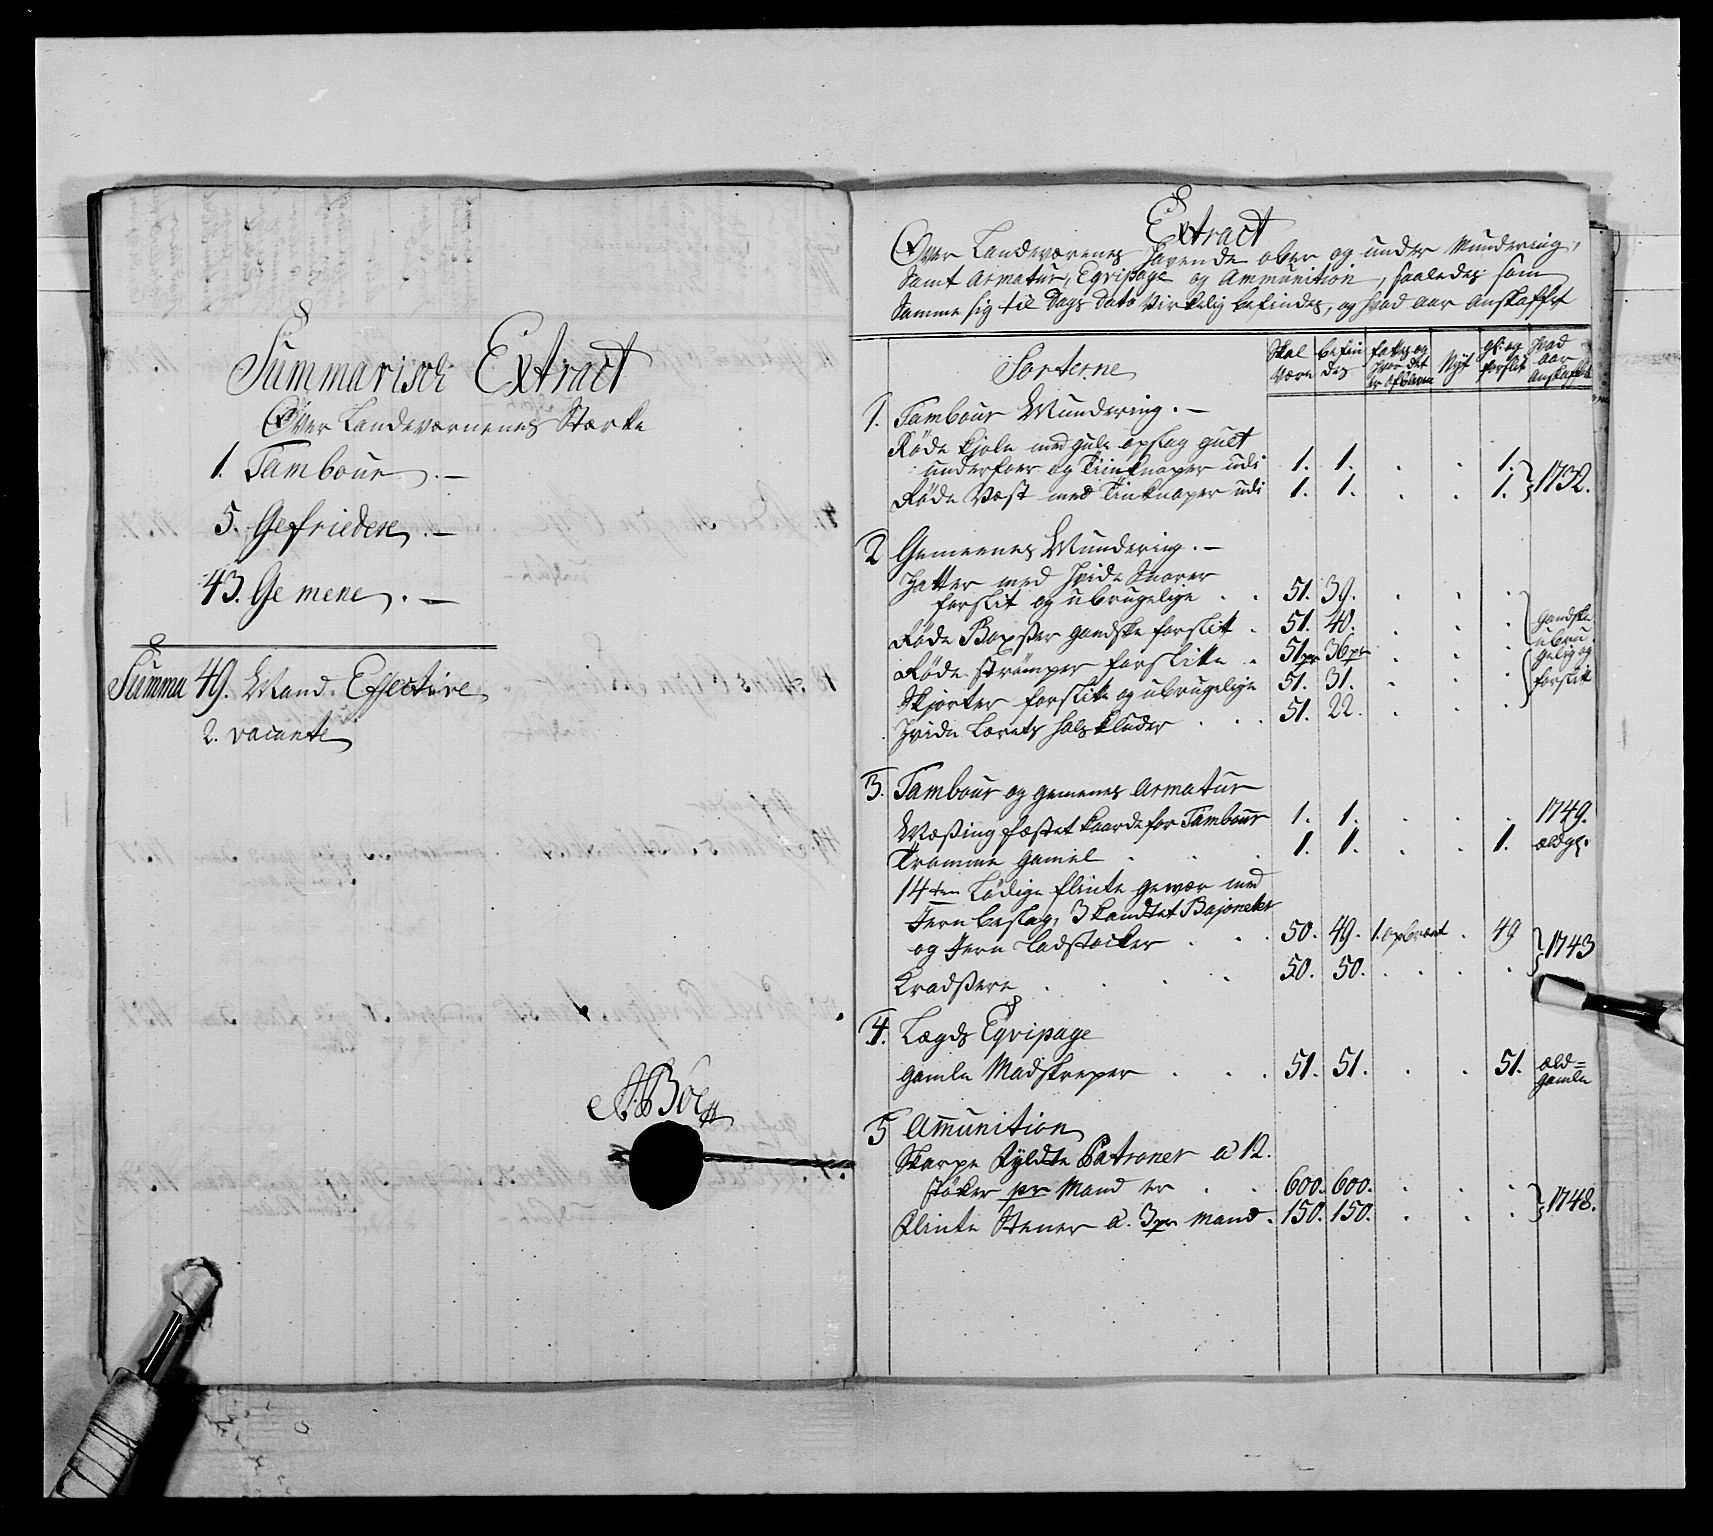 Summarisch Extract
Over Landeværnenes Stærke
1. Tambour. —
5. Gefriedere. —
43. Gemene. —
Summa 49. Mand. Effective
2. vacante
Extract
Over Landeværenes havende ober og under Mundering,
Samt Armatur, Eqvipage og Ammunition, saaledes som
Samme sig til Dags dato virkelig befindes, og hvad aar anskaffet
Sorterne
Skal være
befindes
fattes og hvor det er afbleven
Nyt
gl: og forslit
hvad aar anskaffet
1. Tambour Mundering. —
Røde kjole med gule opslag gult
underfoer og Tinknaper udi 1. 1. . . 1.
Røde Væst med Tinknaper udi 1. 1. . . 1. } 1732.
2 Gemeenes Mundering. —
Hatter med hvide Snorer
forslit og ubrugelige . . 51. 39. . . .
Røde Boxser gandske forslitt . 51. 40. . . .
Røde strømper forslitte . 51 pr 36 pr . . .
Skjorter forslitte og ubrugelige 51. 31. . . .
Hvide Lærets halsklæder . . . 51. 22. . . .
gandske
ubru
gelig og
forslitt
3. Tambour og gemenes Armatur
Mæssing fæstet kaarde for Tambour 1. 1. . . . 1749.
Tromme gamel . . . 1. 1. . . 1. ældgl.
14ten Lødige flinte gevær med
Jern beslag, 3 kandtet Bajoneter
og Jern Ladstocker . . . 50. 49. 1. opbrændt . 49
Kradsere . . . . 50. 50. . . . } 1743
4. Lægds Eqvipage
gamle Madskreper . . . 51. 51. . . 51. æld=
gamle
5 Amunition
Skarpe fyldte Patroner a 12.
støker pr Mand er . . 600. 600. . . .
Flinte Stener a. 3 pr mand. 150. 150. . . . } 1748.
ABöe